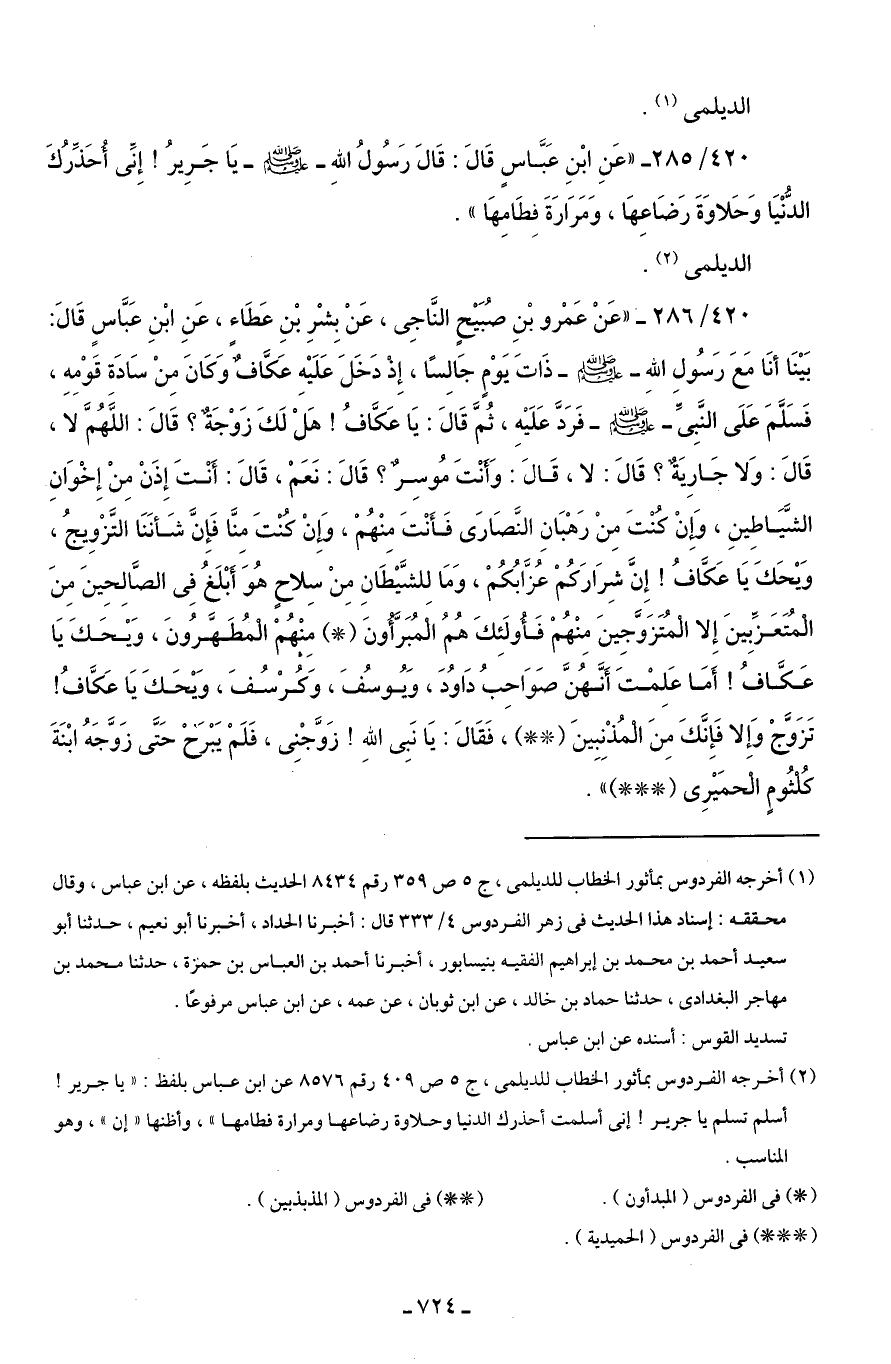 الديلمى (١) .
٤٢٠/ ٢٨٥ـ «عَنِ ابْنِ عَبَّاسٍ قَالَ : قَالَ رَسُولُ اللهِ ـ ﷺ ـ يَا جَرِيرُ ! إِنِّى أُحَذِّرُكَ
الدُّنْيَا وَحَلاوَةَ رَضَاعِهَا ، وَمَرَارَةَ فِطَامِهَا » .
الديلمى (٢) .
٤٢٠/ ٢٨٦ ـ «عَنْ عَمْرِو بْنِ صُبَيْحٍ النَّاجِى ، عَنْ بِشْرِ بْنِ عَطَاءٍ ، عَنِ ابْنِ عَبَّاسٍ قَالَ:
بَيْنَا أَنَا مَعَ رَسُولِ اللهِ ـ ﷺ ـ ذَاتَ يَوْمٍ جَالِسًا ، إِذْ دَخَلَ عَلَيْهِ عَكَّافٌ وَكَانَ مِنْ سَادَةِ قَوْمِهِ ،
فَسَلَّمَ عَلَى النَّبِىِّ ـ ﷺ ـ فَرَدَّ عَلَيْهِ ، ثُمَّ قَالَ : يَا عَكَّافُ ! هَلْ لَكَ زَوْجَةٌ ؟ قَالَ : اللَّهُمَّ لا ،
قَالَ : وَلا جَارِيَةٌ ؟ قَالَ : لا ، قَالَ : وَأَنْتَ مُوسِرٌ ؟ قَالَ : نَعَمْ ، قَالَ : أَنْتَ إِذَنْ مِنْ إِخْوَانِ
الشَّيَاطِينِ ، وَإِنْ كُنْتَ مِنْ رَهْبَانِ النَّصَارَى فَأَنْتَ مِنْهُمْ ، وَإِنْ كُنْتَ مِنَّا فَإِنَّ شَأْنَنَا التَّزْوِيجُ ،
وَيْحَكَ يَا عَكَّافُ ! إِنَّ شِرَارَكُمْ عُزَّابُكُمْ ، وَمَا لِلشَّيْطَانِ مِنْ سِلاحٍ هُوَ أَبْلَغُ فِى الصَّالِحِينَ مِنَ
الْمُتَعَزِّبِينَ إِلا الْمُتَزَوِّجِينَ مِنْهُمْ فَأُولَئِكَ هُمُ الْمُبَرَّأُونَ (*) مِنْهُمْ الْمُطَهَّرُونَ ، وَيْحَكَ يَا
عَكَّافُ ! أَمَا عَلِمْتَ أَنَّهُنَّ صَوَاحِبُ دَاوُدَ ، وَيُوسُفَ ، وَكُرْسُفَ ، وَيْحَكَ يَا عَكَافُ!
تَزَوَّجْ وَإِلا فَإِنَّكَ مِنَ الْمُذْنِبِينَ (**) ، فَقَالَ : يَا نَبِى اللهِ ! زَوِّجْنِى ، فَلَمْ يَبْرَحْ حَتَّى زَوَّجَهُ ابْنَةَ
كُلْثُومٍ الْحِمْيَرِى (***)» .
(١) أخرجه الفردوس بمأثور الخطاب للديلمى ، ج ٥ ص ٣٥٩ رقم ٨٤٣٤ الحديث بلفظه ، عن ابن عباس ، وقال
محققه : إسناد هذا الحديث فى زهر الفردوس ٤/ ٣٣٣ قال : أخبرنا الحداد ، أخبرنا أبو نعيم ، حدثنا أبو
سعيد أحمد بن محمد بن إبراهيم الفقيه بنيسابور ، أخبرنا أحمد بن العباس بن حمزة ، حدثنا محمد بن
مهاجر البغدادى ، حدثنا حماد بن خالد ، عن ابن ثوبان ، عن عمه ، عن ابن عباس مرفوعًا .
تسديد القوس : أسنده عن ابن عباس .
(٢) أخرجه الفردوس بمأثور الخطاب للديلمى ، ج ٥ ص ٤٠٩ رقم ٨٥٧٦ عن ابن عباس بلفظ : « يا جرير !
أسلم تسلم يا جرير ! إنى أسلمت أحذرك الدنيا وحلاوة رضاعها ومرارة فطامها » ، وأظنها « إن » ، وهو
المناسب .
(*) فى الفردوس ( المبدأون ) . (**) فى الفردوس ( المذبذبين ) .
(***) فى الفردوس ( الحميدية ) .
ـ ٧٢٤ ـ